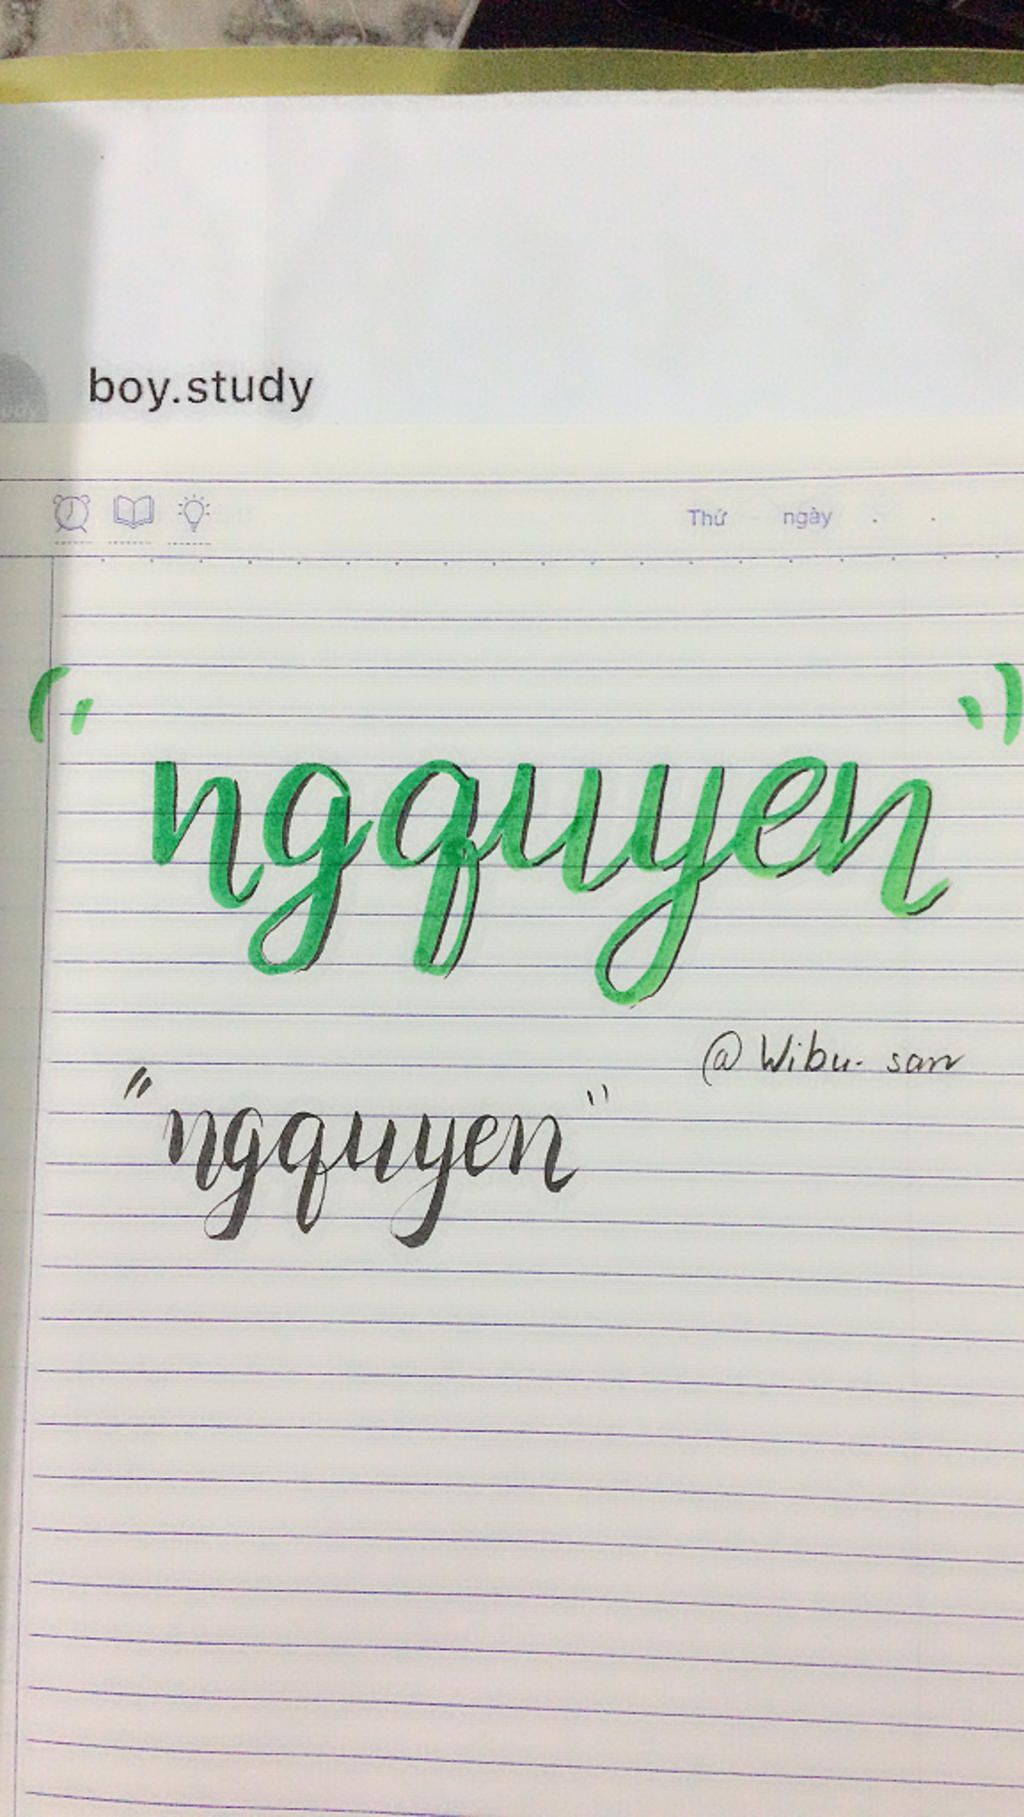 boy.study
Thứ ngày . .
"ngquyen"
@Wibu. san
"ngquyen"